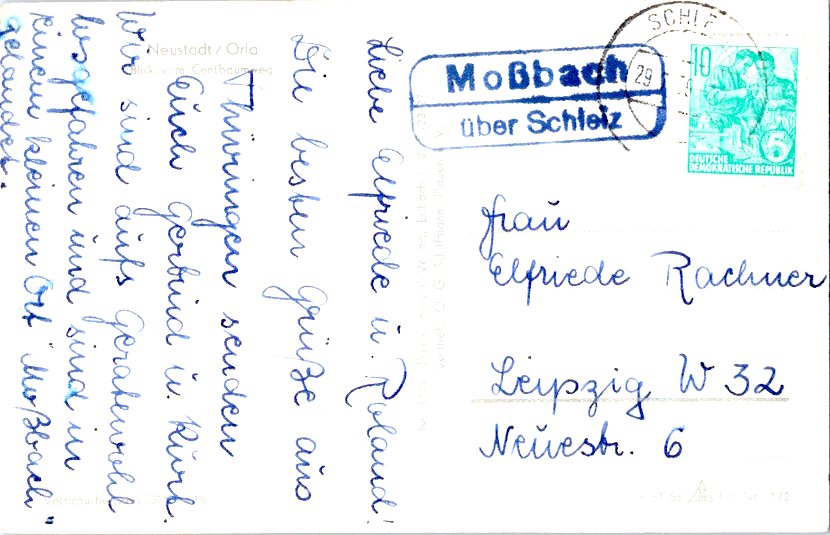 Neustadt / Orla
Liebe Elfriede u. Roland!
Die besten Grüße aus
Thüringen senden
Euch Gerlind u. Kurt.
Wir sind aufs Geratewohl
losgefahren und sind in
einem kleinen Ort "Moßbach"
gelandet.
Moßbach
über Schleiz
SCHLE
29
10
5
DEUTSCHE
DEMOKRATISCHE REPUBLIK
Frau
Elfriede Rachner
Leipzig W 32
Neuestr. 6